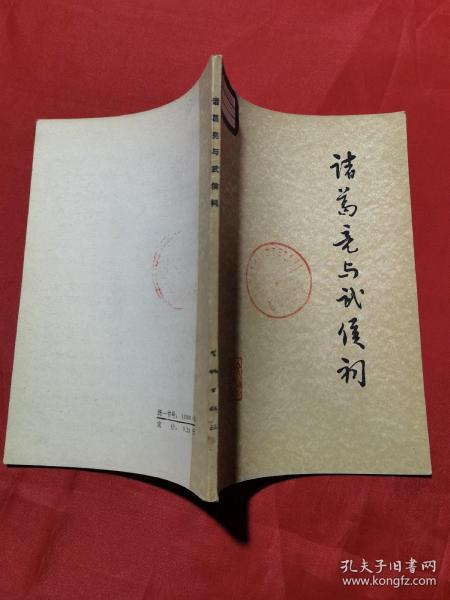 诸葛亮与武侯祠
诸葛亮与武侯祠
文物出版社
统一书号:
定价:
孔夫子旧书网
www.kongfz.com